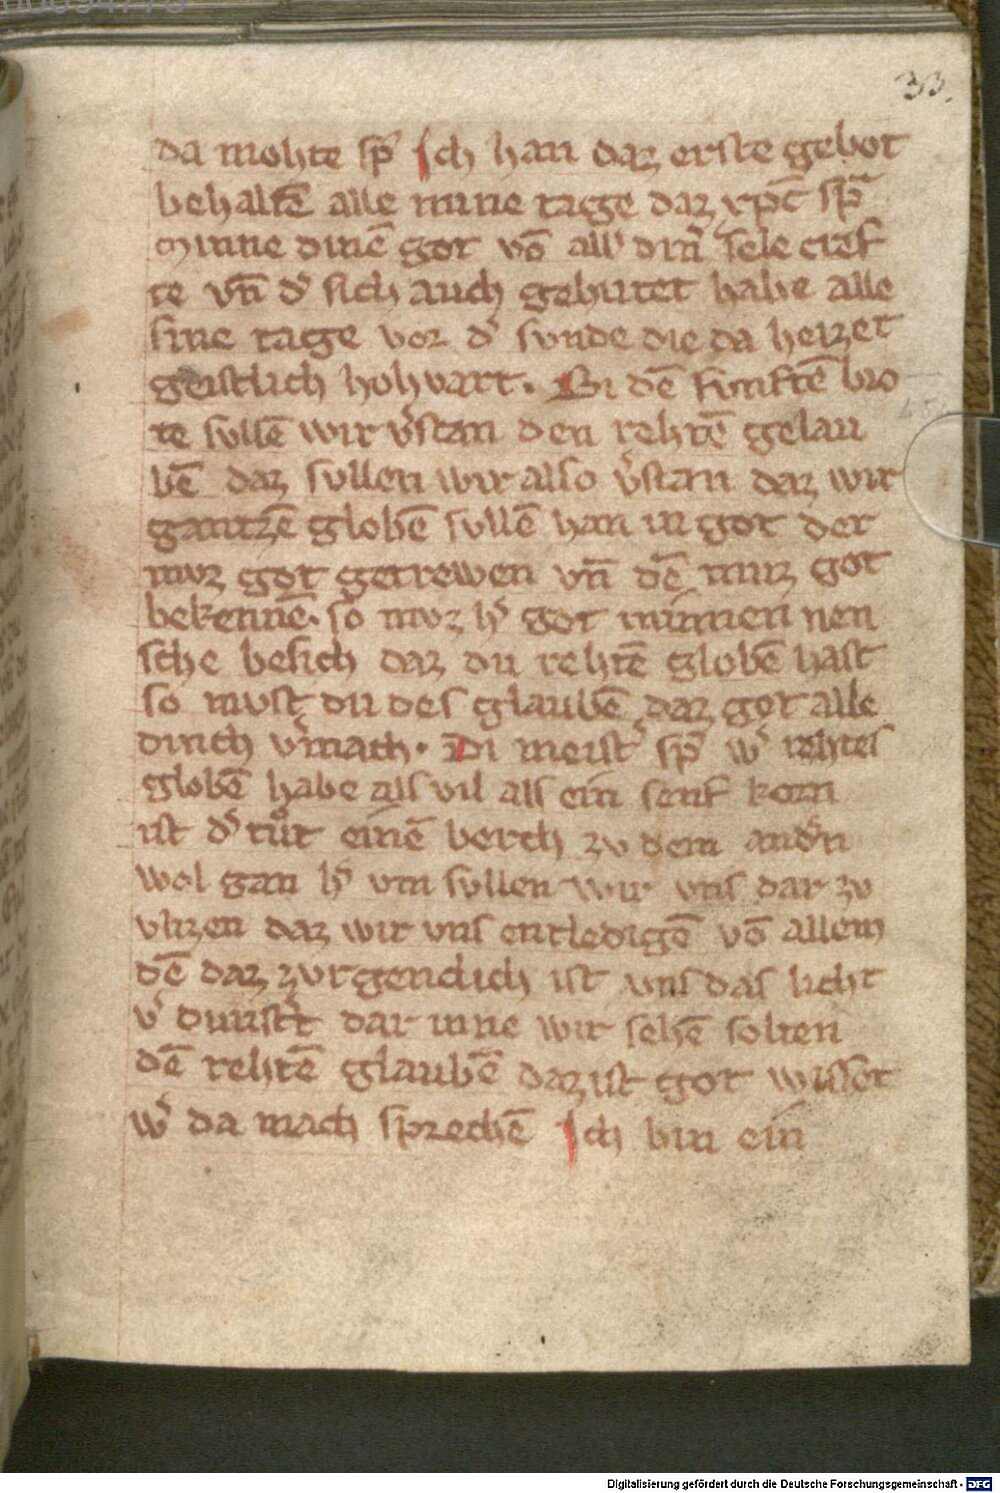 33.
da mohte sp̄ Ich han daz erste gebot
behaltē alle mine tage daz xp̄c sp̄
Minne dinē got vō all' din' sele cref
te vn̄ d' sich auch gehutet habe alle
sine tage vor d' svnde die da heizet
geistlich hohvart. Bi dē funftē bro
te sullē wir v'stan den rehtē gelau
bē daz sullen wir also v'stan daz wir
gantzē globē sullē han in got der
mvz got getrewen vn̄ dē muz got
bekennē. so mvz h' got minnen nen
sche besich daz du rehtē globē hast
so mvst du des glaubē daz got alle
dinch v'mach. Di meist' sp̄ w' rehtes
globē habe als vil als ein senf korn
ist d' tůt einē berch zv dem and'n
wol gan h' vm sullen wir vns dar zv
vlizen daz wir vns entledigē vō allem
dē daz zurgenclich ist vns das licht
v' dunst't dar inne wir sehē solten
dē rehtē glaubē daz ist got wisset
w' da mach sprechē Ich bin ein
Digitalisierung gefördert durch die Deutsche Forschungsgemeinschaft - DFG